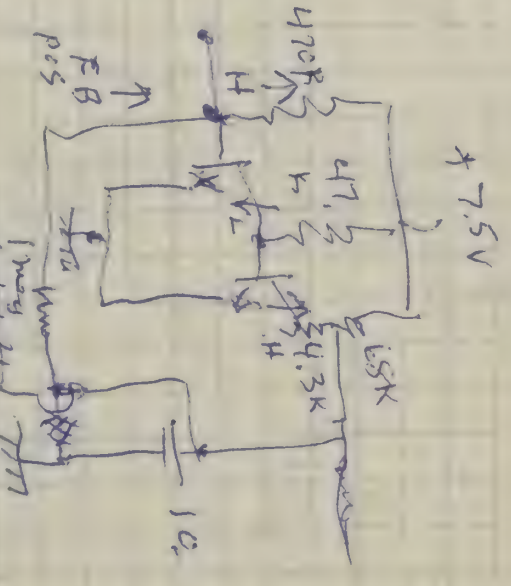 +7.5V
470K
47.
K
65K
H
L
H
4.3K
FB
pos
1 meg
10.